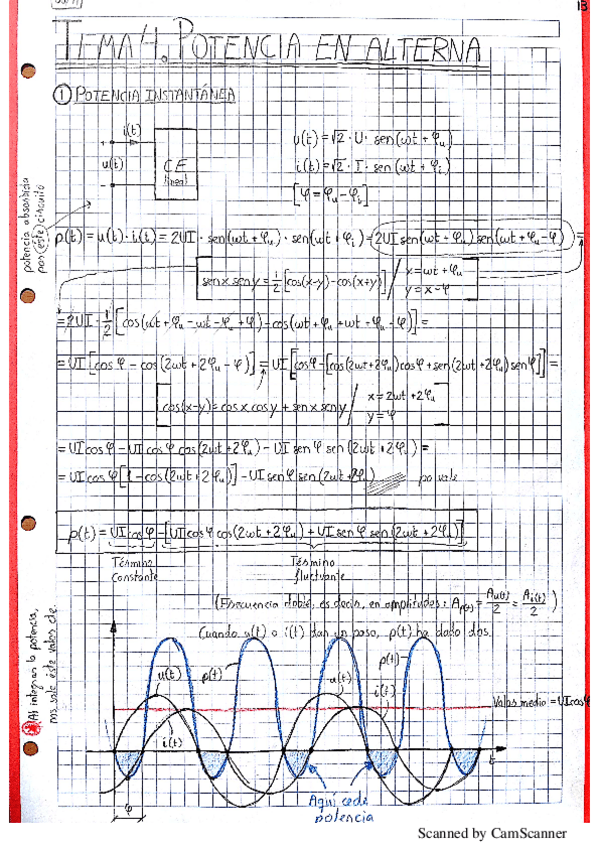 13
TEMA 4. POTENCIA EN ALTERNA
① POTENCIA INSTANTÁNEA
i(t)
u(t)
CE
lineal
u(t) = √2 · U · sen(ωt + φu)
i(t) = √2 · I · sen(ωt + φi)
[φ = φu - φi]
potencia absorbida
por (este) circuito
p(t) = u(t) · i(t) = 2UI · sen(ωt + φu) · sen(ωt + φi) = 2UI sen(ωt + φu) sen(ωt + φu - φ) =
[sen x sen y = 1/2 [cos(x-y) - cos(x+y)] / x = ωt + φu
y = x - φ]
= 2UI · 1/2 [cos(ωt + φu - ωt - φu + φ) - cos(ωt + φu + ωt + φu - φ)] =
= UI [cos φ - cos(2ωt + 2φu - φ)] = UI [cos φ - [cos(2ωt + 2φu) cos φ + sen(2ωt + 2φu) sen φ]] =
[cos(x-y) = cos x cos y + sen x sen y / x = 2ωt + 2φu
y = φ]
= UI cos φ - UI cos φ cos(2ωt + 2φu) - UI sen φ sen(2ωt + 2φu) =
= UI cos φ [1 - cos(2ωt + 2φu)] - UI sen φ sen(2ωt + 2φu)
p(t) = UI cos φ - [UI cos φ cos(2ωt + 2φu) + UI sen φ sen(2ωt + 2φu)]
Término
constante
Término
fluctuante
(Frecuencia doble, es decir, en amplitudes: Ap(t) = Au(t)/2 = Ai(t)/2)
Cuando u(t) o i(t) dan un paso, p(t) ha dado dos.
Al integrar la potencia,
nos sale este valor de.
u(t)
p(t)
i(t)
u(t)
p(t)
i(t)
Valor medio = UI cos φ
t
φ
Aquí cede
potencia
Scanned by CamScanner